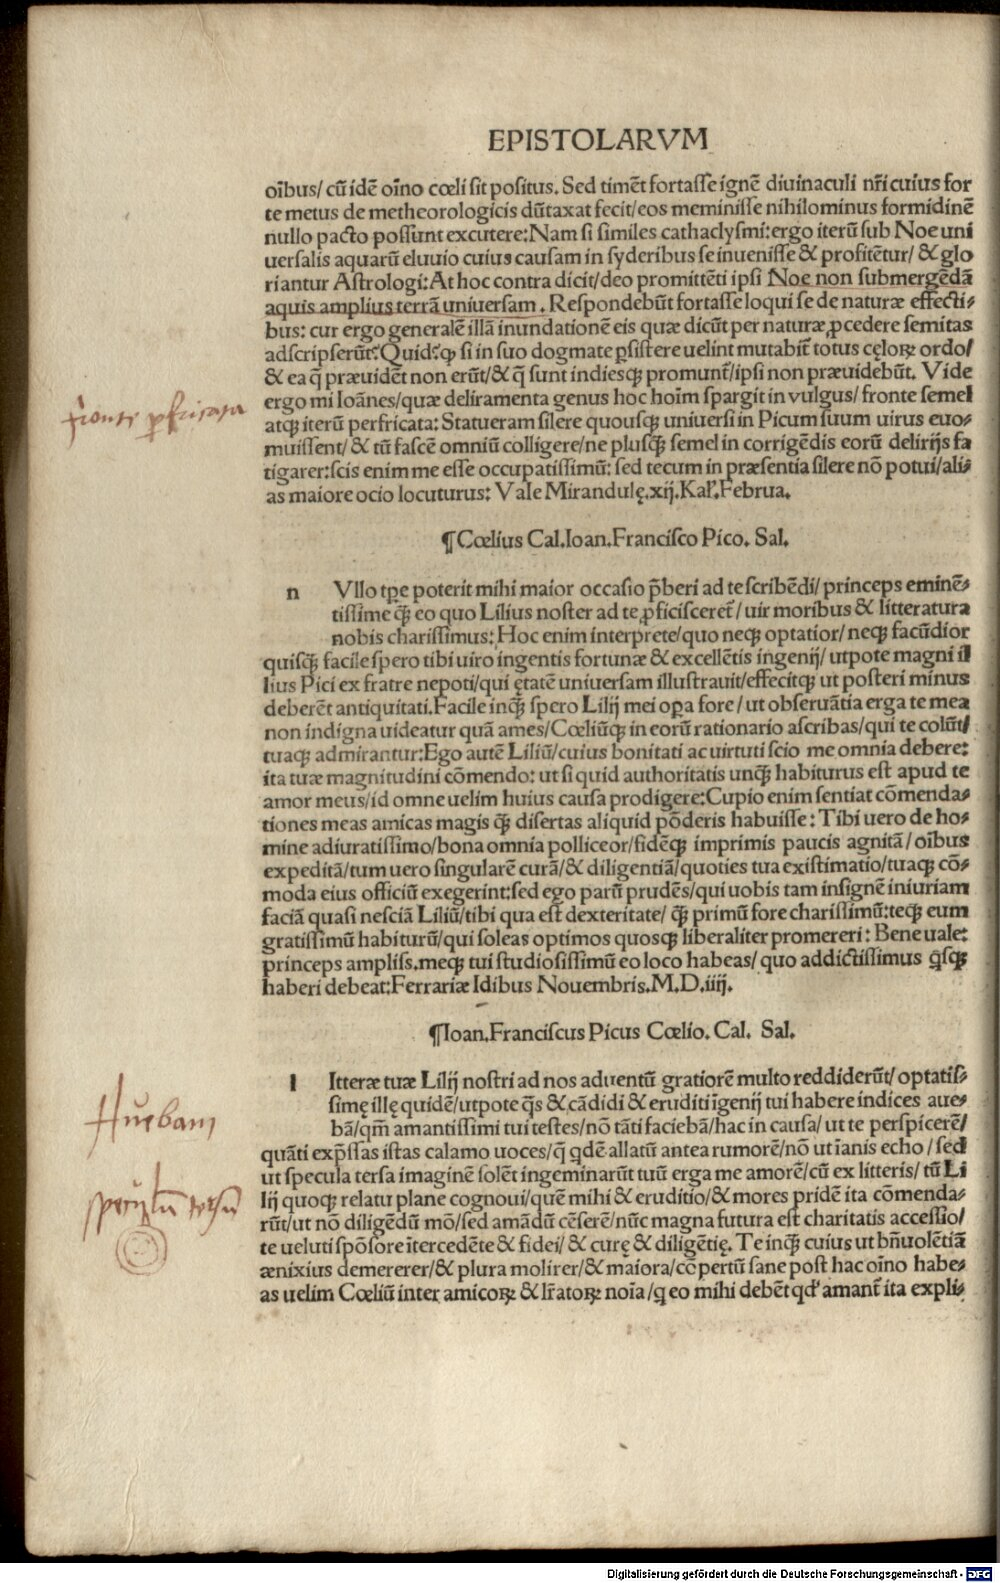 EPISTOLARVM
oı̄bus/ cū idē oı̄no cœli sit positus. Sed timēt fortasse ignē diuinaculi nr̄i cuius for
te metus de metheorologicis dūtaxat fecit/eos meminisse nihilominus formidinē
nullo pacto possunt excutere: Nam si similes cathaclysmi: ergo iterū sub Noe uni
uersalis aquarū eluuio cuius causam in syderibus se inuenisse & profitētur/ & glo
riantur Astrologi: At hoc contra dicit/deo promittēti ipsi Noe non submergēdā
aquis amplius terrā uniuersam. Respondebūt fortasse loqui se de naturæ effecti-
bus: cur ergo generalē illā inundationē eis quæ dicūt per naturæ ꝓcedere semitas
adscripserūt? Quid? ꝙ si in suo dogmate ꝑsistere uelint mutabit̄ totus cęloꝝ ordo/
& ea q̄ præuidēt non erūt/& q̄ sunt indiesqꝫ promunt̄/ipsi non præuidebūt. Vide
ergo mi Ioānes/quæ deliramenta genus hoc hoīm spargit in vulgus/ fronte semel
fronte ꝑfricata
atqꝫ iterū perfricata: Statueram silere quousqꝫ uniuersi in Picum suum uirus euo-
muissent/ & tū fascē omniū colligere/ne plusq̄ȝ semel in corrigēdis eorū delirijs fa
tigarer: scis enim me esse occupatissimū: sed tecum in præsentia silere nō potui/ali-
as maiore ocio locuturus: Vale Mirandulę. xij. Kal̄. Februa.
¶ Cœlius Cal. Ioan. Francisco Pico. Sal.
n Vllo tꝑe poterit mihi maior occasio p̄beri ad te scribēdi/ princeps eminē-
tissime q̄ȝ eo quo Lilius noster ad te ꝓficisceret̄/ uir moribus & litteratura
nobis charissimus: Hoc enim interprete/quo neqꝫ optatior/ neqꝫ facūdior
quisq̄ȝ facile spero tibi uiro ingentis fortunæ & excellētis ingenij/ utpote magni il
lius Pici ex fratre nepoti/qui ętatē uniuersam illustrauit/effecitqꝫ ut posteri minus
deberēt antiquitati. Facile inq̄ȝ spero Lilij mei oꝑa fore/ ut obseruātia erga te mea
non indigna uideatur quā ames/Cœliūqꝫ in eorū rationario ascribas/qui te colūt/
tuaqꝫ admirantur: Ego autē Liliū/cuius bonitati ac uirtuti scio me omnia debere:
ita tuæ magnitudini cōmendo: ut si quid authoritatis unq̄ȝ habiturus est apud te
amor meus/id omne uelim huius causa prodigere: Cupio enim sentiat cōmenda-
tiones meas amicas magis q̄ȝ disertas aliquid pōderis habuisse: Tibi uero de ho-
mine adiuratissimo/bona omnia polliceor/fidēqꝫ imprimis paucis agnitā/ oı̄bus
expeditā/tum uero singularē curā/& diligentiā/quoties tua existimatio/tuaqꝫ cō-
moda eius officiū exegerint: sed ego parū prudēs/qui uobis tam insignē iniuriam
faciā quasi nesciā Liliū/tibi qua est dexteritate/ q̄ȝ primū fore charissimū: teqꝫ eum
gratissimū habiturū/qui soleas optimos quosqꝫ liberaliter promereri: Bene uale:
princeps ampliss. meqꝫ tui studiosissimū eo loco habeas/ quo addictissimus q̇sqꝫ
haberi debeat: Ferrariæ Idibus Nouembris. M. D. iiij.
¶ Ioan. Franciscus Picus Cœlio. Cal. Sal.
l Itteræ tuæ Lilij nostri ad nos aduentū gratiorē multo reddiderūt/ optatis-
simę illę quidē/utpote q̄s & cādidi & eruditi ı̄genij tui habere indices aue-
Auebam
bā/qm̄ amantissimi tui testes/nō tāti faciebā/hac in causa/ ut te perspicerē/
quāti exp̄ssas istas calamo uoces/q̄ q̇dē allatū antea rumorē/nō ut ı̄anis echo/ sed
ut specula tersa imaginē solēt ingeminarūt tuū erga me amorē/cū ex litteris/ tū Li
speculū tersū
lij quoqꝫ relatu plane cognoui/quē mihi & eruditio/& mores pridē ita cōmenda-
rūt/ut nō diligēdū mō/sed amādū cēserē/nūc magna futura est charitatis accessio/
te ueluti spōsore ı̄tercedēte & fidei/ & curę & diligētię. Te inq̄ȝ cuius ut bn̄uolētiā
ænixius demererer/& plura molirer/& maiora/cōpertū sane post hac oı̄no habe-
as uelim Cœliū inter amicoꝝ & lr̄atoꝝ noı̄a/q eo mihi debēt qd' amant̄ ita expli-
Digitalisierung gefördert durch die Deutsche Forschungsgemeinschaft - DFG